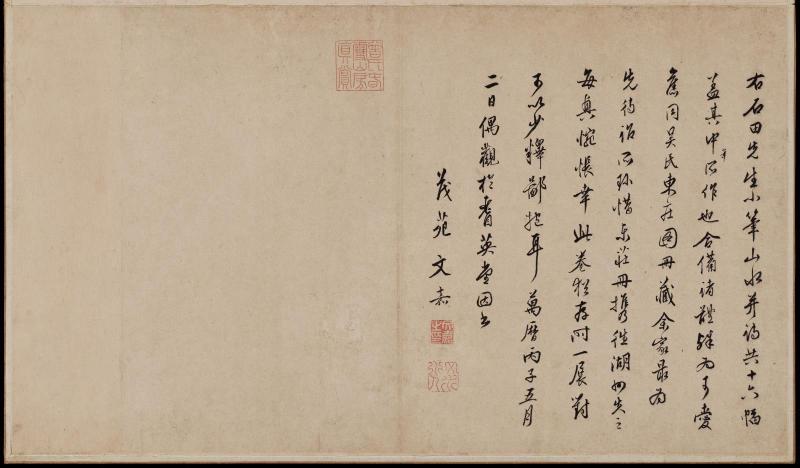 右石田先生小筆山水并詩共十六幅
蓋其中年所作也合備諸體殊為可愛
舊同吳氏東莊圖冊藏余家最為
先待詔所珍惜東莊冊携往湖州失之
每興惋悵幸此卷猶存時一展對
可以少釋鄙抱耳萬曆丙子五月
二日偶觀於耆英堂因書
茂苑文嘉